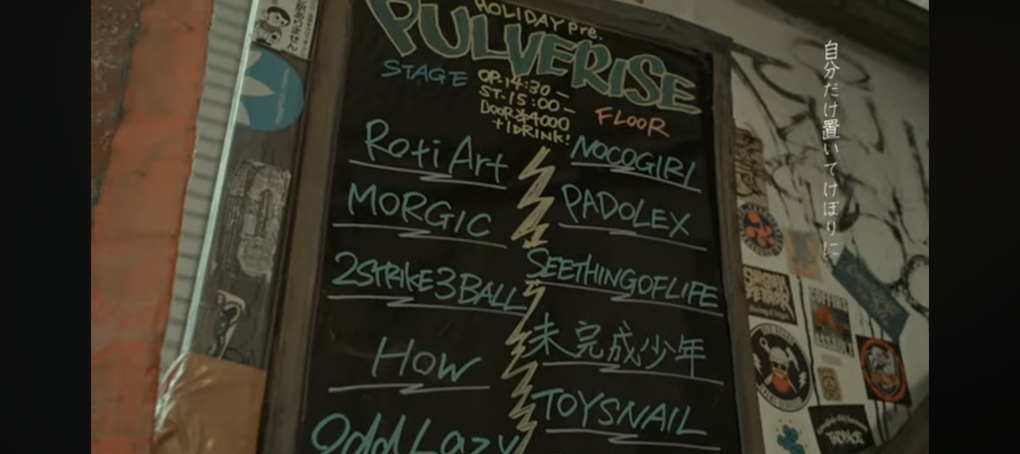 HOLIDAY pre.
PULVERISE
STAGE
OP.14:30-
ST.15:00-
DOOR ¥4000
+1DRINK!
FLOOR
Roti Art
NOCOGIRL
MORGIC
PADOLEX
2STRIKE3BALL
SEETHINGOFLIFE
HOW
未完成少年
Odd Lazy
TOYSNAIL
自分だけ置いてけぼりに